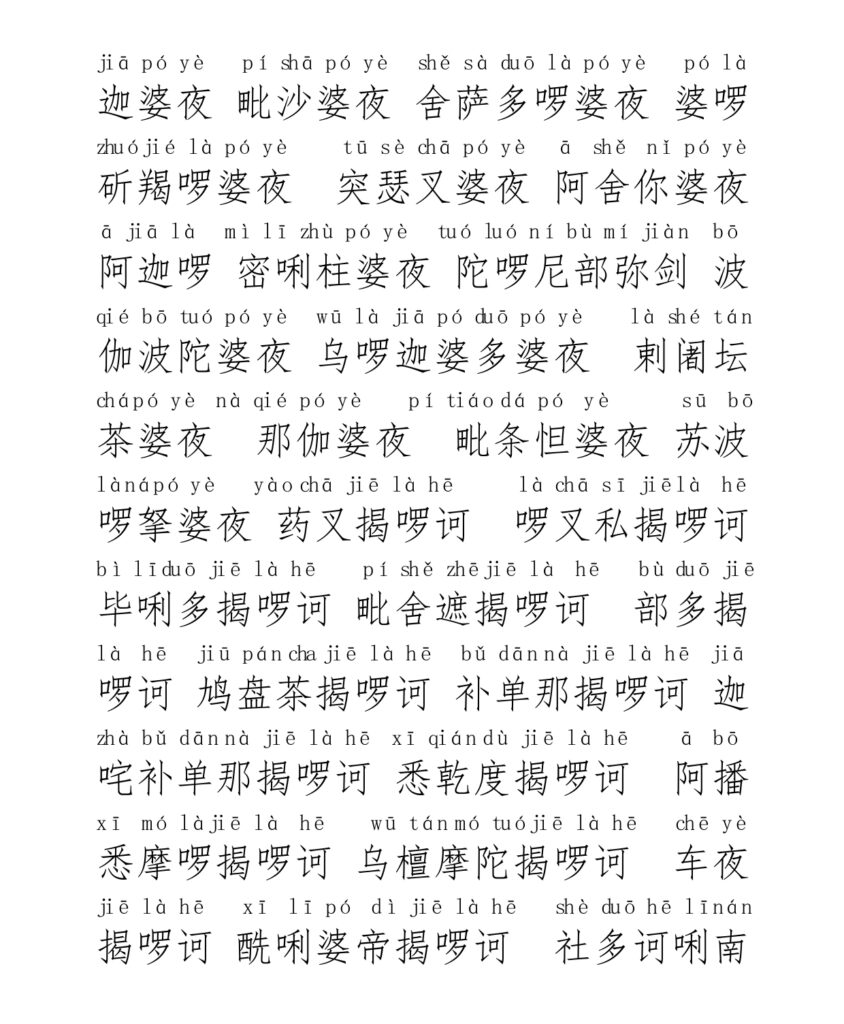 jiā pó yè pí shā pó yè shě sà duō là pó yè pó là
迦婆夜 毗沙婆夜 舍萨多啰婆夜 婆啰
zhuó jié là pó yè tū sè chā pó yè ā shě nǐ pó yè
斫羯啰婆夜 突瑟叉婆夜 阿舍你婆夜
ā jiā là mì lī zhù pó yè tuó luó ní bù mí jiàn bō
阿迦啰 密唎柱婆夜 陀啰尼部弥剑 波
qié bō tuó pó yè wū là jiā pó duō pó yè là shé tán
伽波陀婆夜 乌啰迦婆多婆夜 剌阇坛
chá pó yè nà qié pó yè pí tiáo dá pó yè sū bō
茶婆夜 那伽婆夜 毗条怛婆夜 苏波
là ná pó yè yào chā jiē là hē là chā sī jiē là hē
啰拏婆夜 药叉揭啰诃 啰叉私揭啰诃
bì lī duō jiē là hē pí shě zhē jiē là hē bù duō jiē
毕唎多揭啰诃 毗舍遮揭啰诃 部多揭
là hē jiū pán cha jiē là hē bǔ dān nà jiē là hē jiā
啰诃 鸠盘茶揭啰诃 补单那揭啰诃 迦
zhà bǔ dān nà jiē là hē xī qián dù jiē là hē ā bō
咤补单那揭啰诃 悉乾度揭啰诃 阿播
xī mó là jiē là hē wū tán mó tuó jiē là hē chē yè
悉摩啰揭啰诃 乌檀摩陀揭啰诃 车夜
jiē là hē xī lī pó dì jiē là hē shè duō hē lī nán
揭啰诃 醯唎婆帝揭啰诃 社多诃唎南